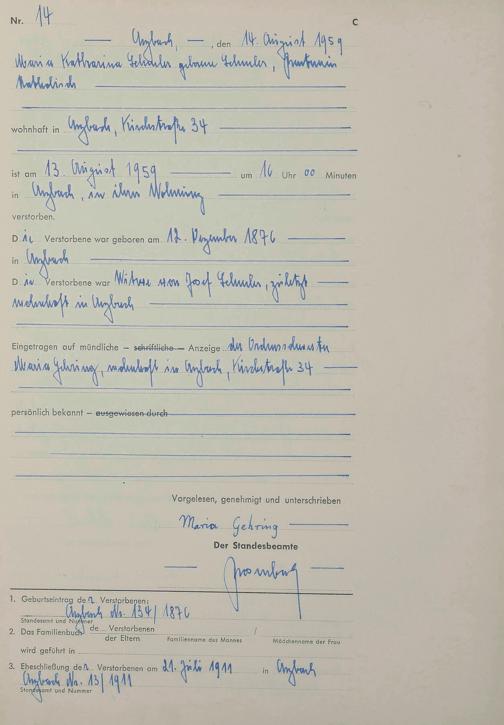 Nr. 14 C
Asbach, —, den 14. August 1959
Maria Katharina Schuler geborene Schuler, Rentnerin
katholisch
wohnhaft in Asbach, Kirchstraße 34
ist am 13. August 1959 um 16 Uhr 00 Minuten
in Asbach, in ihrer Wohnung
verstorben.
Die Verstorbene war geboren am 12. Dezember 1876
in Asbach
Die Verstorbene war Witwe von Josef Schuler, zuletzt
wohnhaft in Asbach
Eingetragen auf mündliche — schriftliche — Anzeige der Ordensschwester
Maria Gehring, wohnhaft in Asbach, Kirchstraße 34
persönlich bekannt — ausgewiesen durch
Vorgelesen, genehmigt und unterschrieben
Maria Gehring
Der Standesbeamte
1. Geburtseintrag der Verstorbenen:
Asbach Nr. 134/1876
Standesamt und Nummer
2. Das Familienbuch de Verstorbenen /
der Eltern Familienname des Mannes Mädchenname der Frau
wird geführt in
3. Eheschließung der Verstorbenen am 21. Juli 1911 in Asbach
Asbach Nr. 13/1911
Standesamt und Nummer